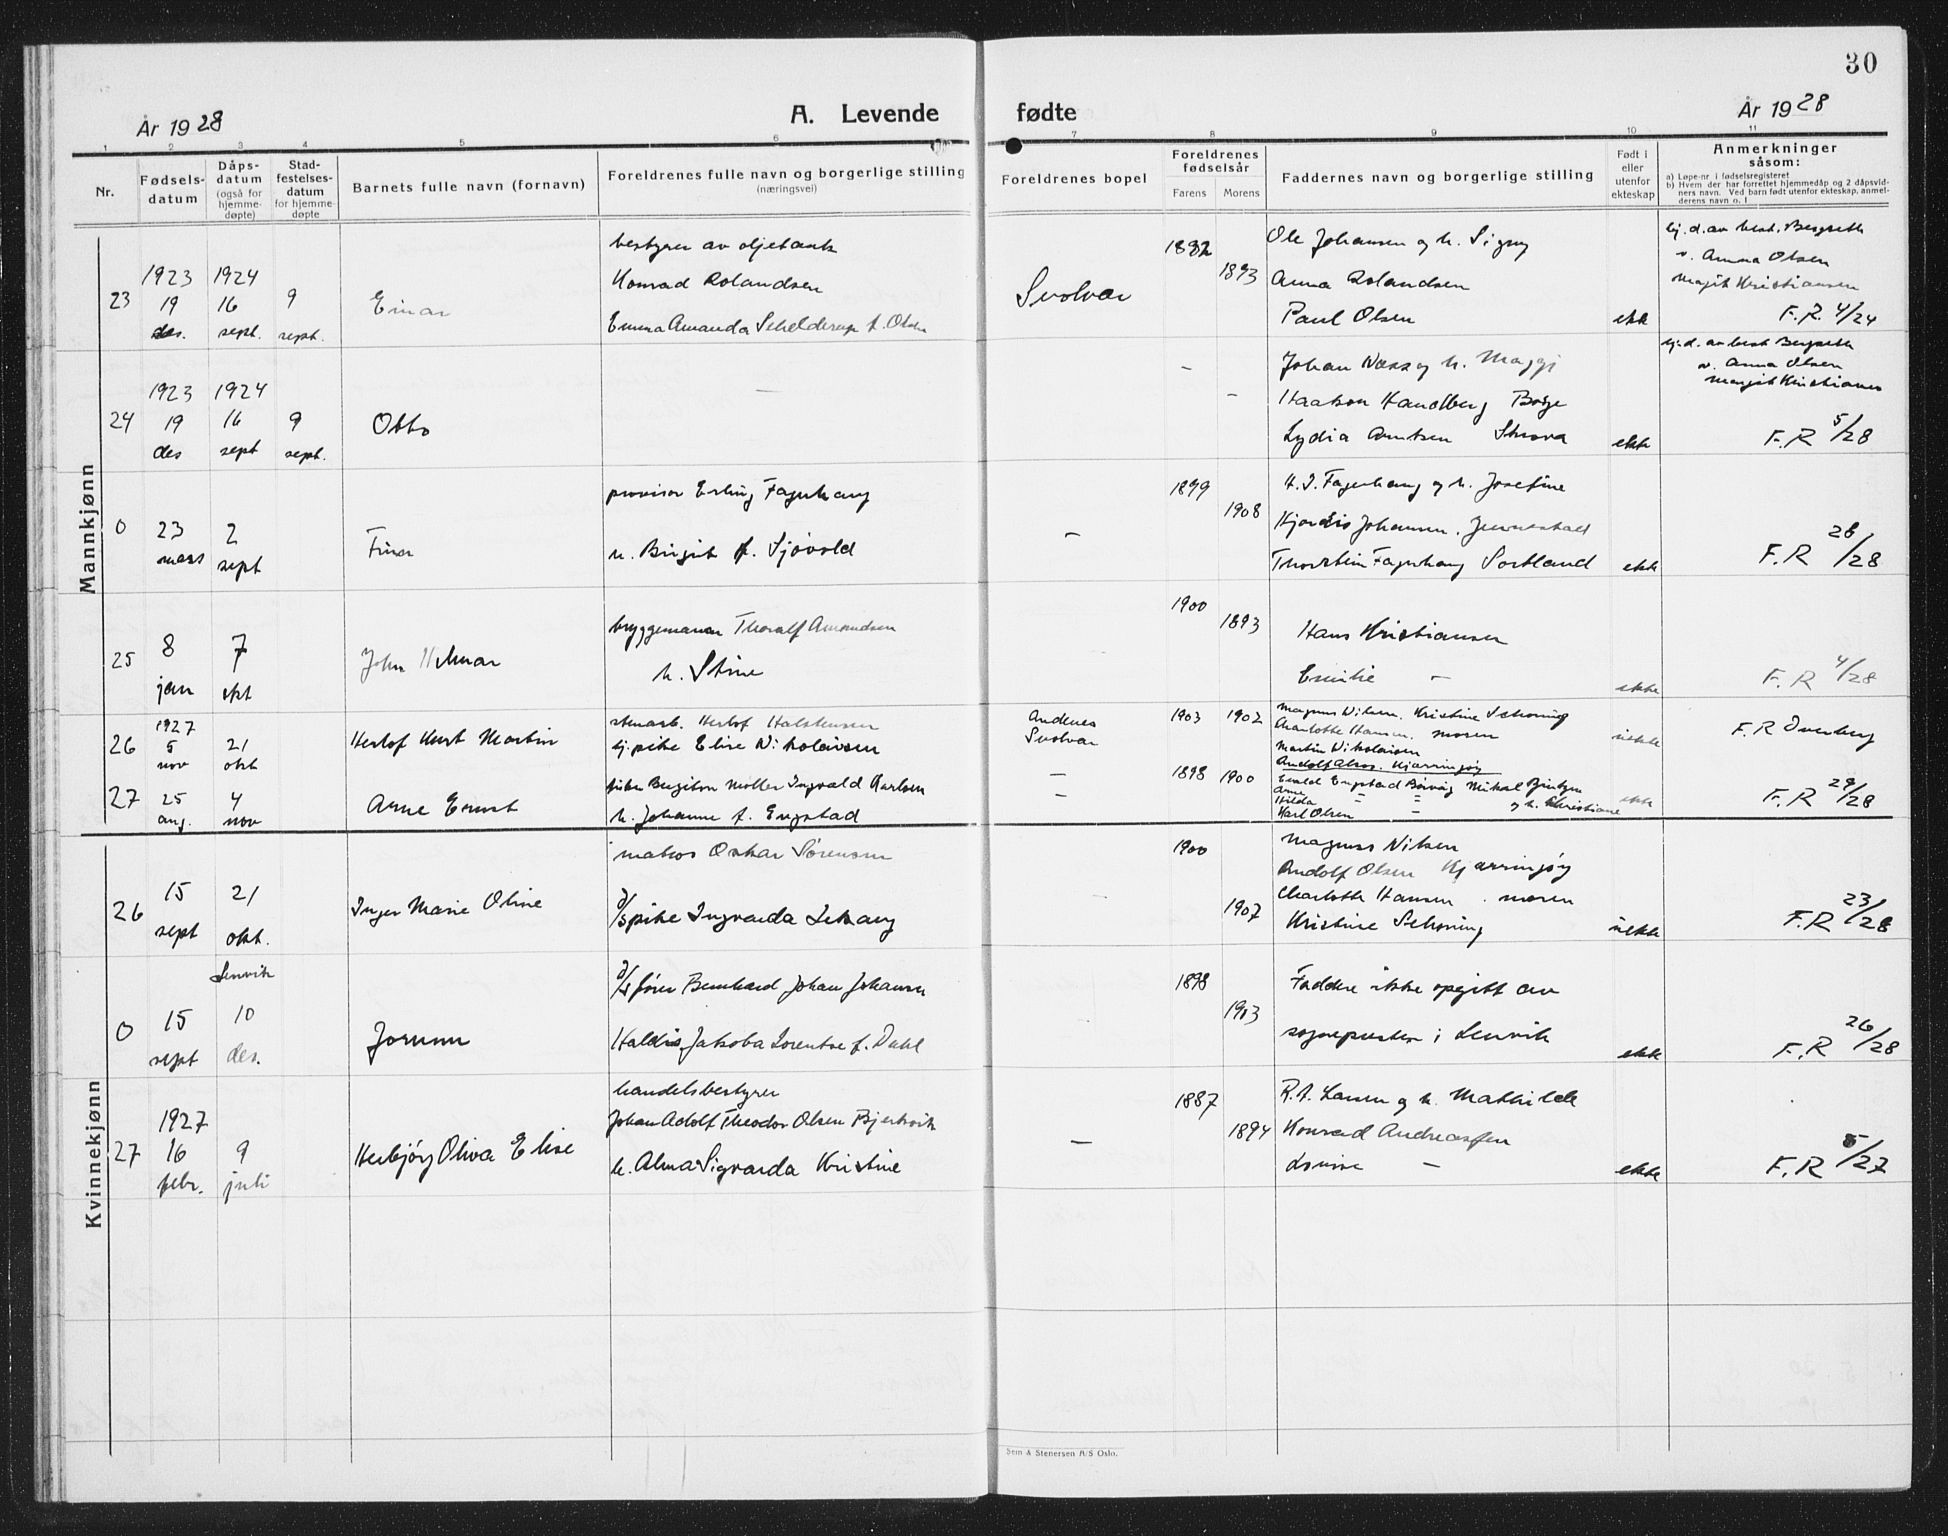 30
År 1928
A. Levende
fødte
År 1928
1 2 3 4 5 6 7 8 9 10 11
Nr.
Fødsels-
datum
Dåps-
datum
(også for
hjemme-
døpte)
Stad-
festelses-
datum
for hjemme-
døpte
Barnets fulle navn (fornavn)
Foreldrenes fulle navn og borgerlige stilling
(næringsvei)
Foreldrenes bopel
Foreldrenes
fødselsår
Farens Morens
Faddernes navn og borgerlige stilling
Født i
eller
utenfor
ekteskap
Anmerkninger
såsom:
a) Løpe-nr i fødselsregisteret
b) Hvem der har forrettet hjemmedåp og 2 dåpsvid-
ners navn. Ved barn født utenfor ekteskap, anmel-
derens navn o. l
Mannkjønn
23
1923
19
des.
1924
16
sept.
9
sept.
Einar
bestyrer av oljetank
Konrad Rolandsen
Emma Amanda Schelderup f. Olsen
Svolvær
1882
1893
Ole Johansen og h. Signy
Anna Rolandsen
Paul Olsen
ekte
hj. d. av best. Bergseth
v. Anna Olsen
Magit Kristiansen
F.R. 4/24
24
1923
19
des
1924
16
sept
9
sept.
Otto
—
—
—
Johan Næss og h. Maggi
Haakon Handberg Borge
Lydia Arntsen
ekte
hj. d. av best Bergseth
v. Anna Olsen
Margit Kristiansen
F.R 5/28
0
23
mars
2
sept
Finn
provisor Erling Fagerhaug
h. Birgit f. Sjøvold
—
1899
1908
H. J. Fagerhaug og h. Josefine
Hjordis Johansen.
Thorstein Fagerhaug Sortland
ekte
F.R 28/28
25
8
jan
7
okt
John Hilmar
bryggemann Thoralf Amundsen
h. Stine
1900
1893
Hans Kristiansen
Emilie —
ekte
F.R 4/28
26
1927
5
nov
21
okt
Herlof Kurt Martin
stenarb. Herlof Halstensen
hj. pike Elise Nikolaisen
Andenes
Svolvær
1903
1902
Magnus Nilsen. Kristine Schøning
Charlotte Hansen. moren
Martin Nikolaisen
Andolf Olsen. Kjærringøy
uekte
F.R Overberg
27
25
aug.
4
nov
Arne Ernst
Ingvald Karlsen
h. Johanne f. Engstad
—
—
1898
1900
Evald Engstad
Arne — —
Hilda — — og h. Christiane
Karl Olsen —
ekte
F.R 29/28
Kvinnekjønn
26
15
sept
21
okt.
Inger Marie Oline
matros Oskar Sørensen
d/s pike Ingvarda Lekang
1900
1907
Magnus Nilsen
Andolf Olsen Kjærringøy
Charlotte Hansen. moren
Kristine Schøning
uekte
F.R 23/28
0
15
sept
Lenvik
10
des.
Jorunn
d/s fører Bernhard Johan Johansen
Haldis Jakoba Lorentse f. Dahl
1898
1903
Faddere ikke opgitt av
sognepresten i Lenvik
ekte
F.R 26/28
27
1927
16
febr.
9
juli
Herbjørg Oliva Elise
handelsbestyrer
Johan Adolf Theodor Olsen Bjerkvik
h. Alma Sigvarda Kristine
—
1887
1894
R. A. Larsen og h. Mathilde
Konrad Andreassen
Lovise —
ekte
F.R 5/27
Sein & Stenersen A/S Oslo.